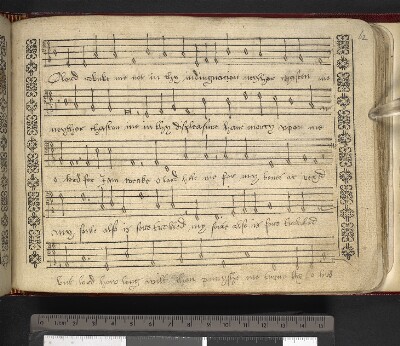 62
O lord rebuke me not in thy indingnation neyther chasten me
neyther chasten me in thy displeasure have mercy upon me
o lord for I am weake o lord hele me for my bones ar vexid
my soule also is sore trobled my soule also is sore trobled
but lord how long wilt thou punyshe me turne the o lord
1 2 3 4 5 6 7 8 9 10 11 12 13 14 15